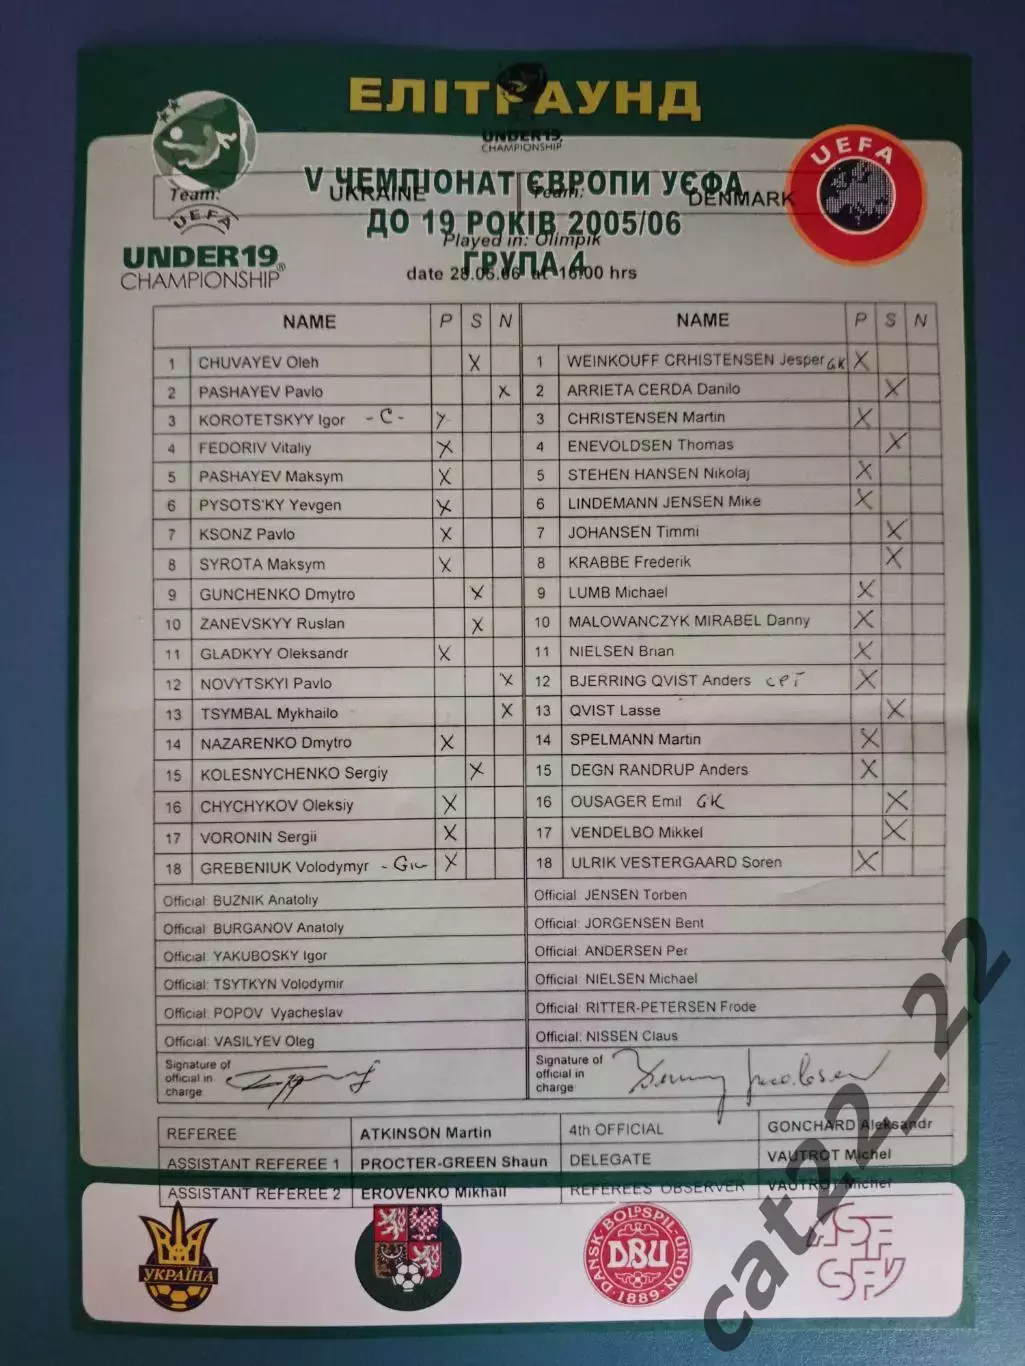 ЕЛІТ РАУНД
UNDER19
CHAMPIONSHIP
V ЧЕМПІОНАТ ЄВРОПИ УЄФА
Team: UKRAINE Team: DENMARK
ДО 19 РОКІВ 2005/06
Played in: Olimpik
ГРУПА 4
date 28.05.06 at 16:00 hrs
UEFA
UEFA
UNDER19
CHAMPIONSHIP®
NAME P S N NAME P S N
1 CHUVAYEV Oleh X 1 WEINKOUFF CRHISTENSEN Jesper GK X
2 PASHAYEV Pavlo X 2 ARRIETA CERDA Danilo X
3 KOROTETSKYY Igor -C- X 3 CHRISTENSEN Martin X
4 FEDORIV Vitaliy X 4 ENEVOLDSEN Thomas X
5 PASHAYEV Maksym X 5 STEHEN HANSEN Nikolaj X
6 PYSOTS'KY Yevgen X 6 LINDEMANN JENSEN Mike X
7 KSONZ Pavlo X 7 JOHANSEN Timmi X
8 SYROTA Maksym X 8 KRABBE Frederik X
9 GUNCHENKO Dmytro X 9 LUMB Michael X
10 ZANEVSKYY Ruslan X 10 MALOWANCZYK MIRABEL Danny X
11 GLADKYY Oleksandr X 11 NIELSEN Brian X
12 NOVYTSKYI Pavlo X 12 BJERRING QVIST Anders CPT X
13 TSYMBAL Mykhailo X 13 QVIST Lasse X
14 NAZARENKO Dmytro X 14 SPELMANN Martin X
15 KOLESNYCHENKO Sergiy X 15 DEGN RANDRUP Anders X
16 CHYCHYKOV Oleksiy X 16 OUSAGER Emil GK X
17 VORONIN Sergii X 17 VENDELBO Mikkel X
18 GREBENIUK Volodymyr -GK X 18 ULRIK VESTERGAARD Soren X
Official: BUZNIK Anatoliy Official: JENSEN Torben
Official: BURGANOV Anatoly Official: JORGENSEN Bent
Official: YAKUBOSKY Igor Official: ANDERSEN Per
Official: TSYTKYN Volodymir Official: NIELSEN Michael
Official: POPOV Vyacheslav Official: RITTER-PETERSEN Frode
Official: VASILYEV Oleg Official: NISSEN Claus
Signature of official in charge Signature of official in charge
REFEREE ATKINSON Martin 4th OFFICIAL GONCHARD Aleksandr
ASSISTANT REFEREE 1 PROCTER-GREEN Shaun DELEGATE VAUTROT Michel
ASSISTANT REFEREE 2 EROVENKO Mikhail REFEREES OBSERVER VAUTROT Michel
УКРАЇНА
DANSK BOLDSPIL-UNION
DBU
1889
cat22_22